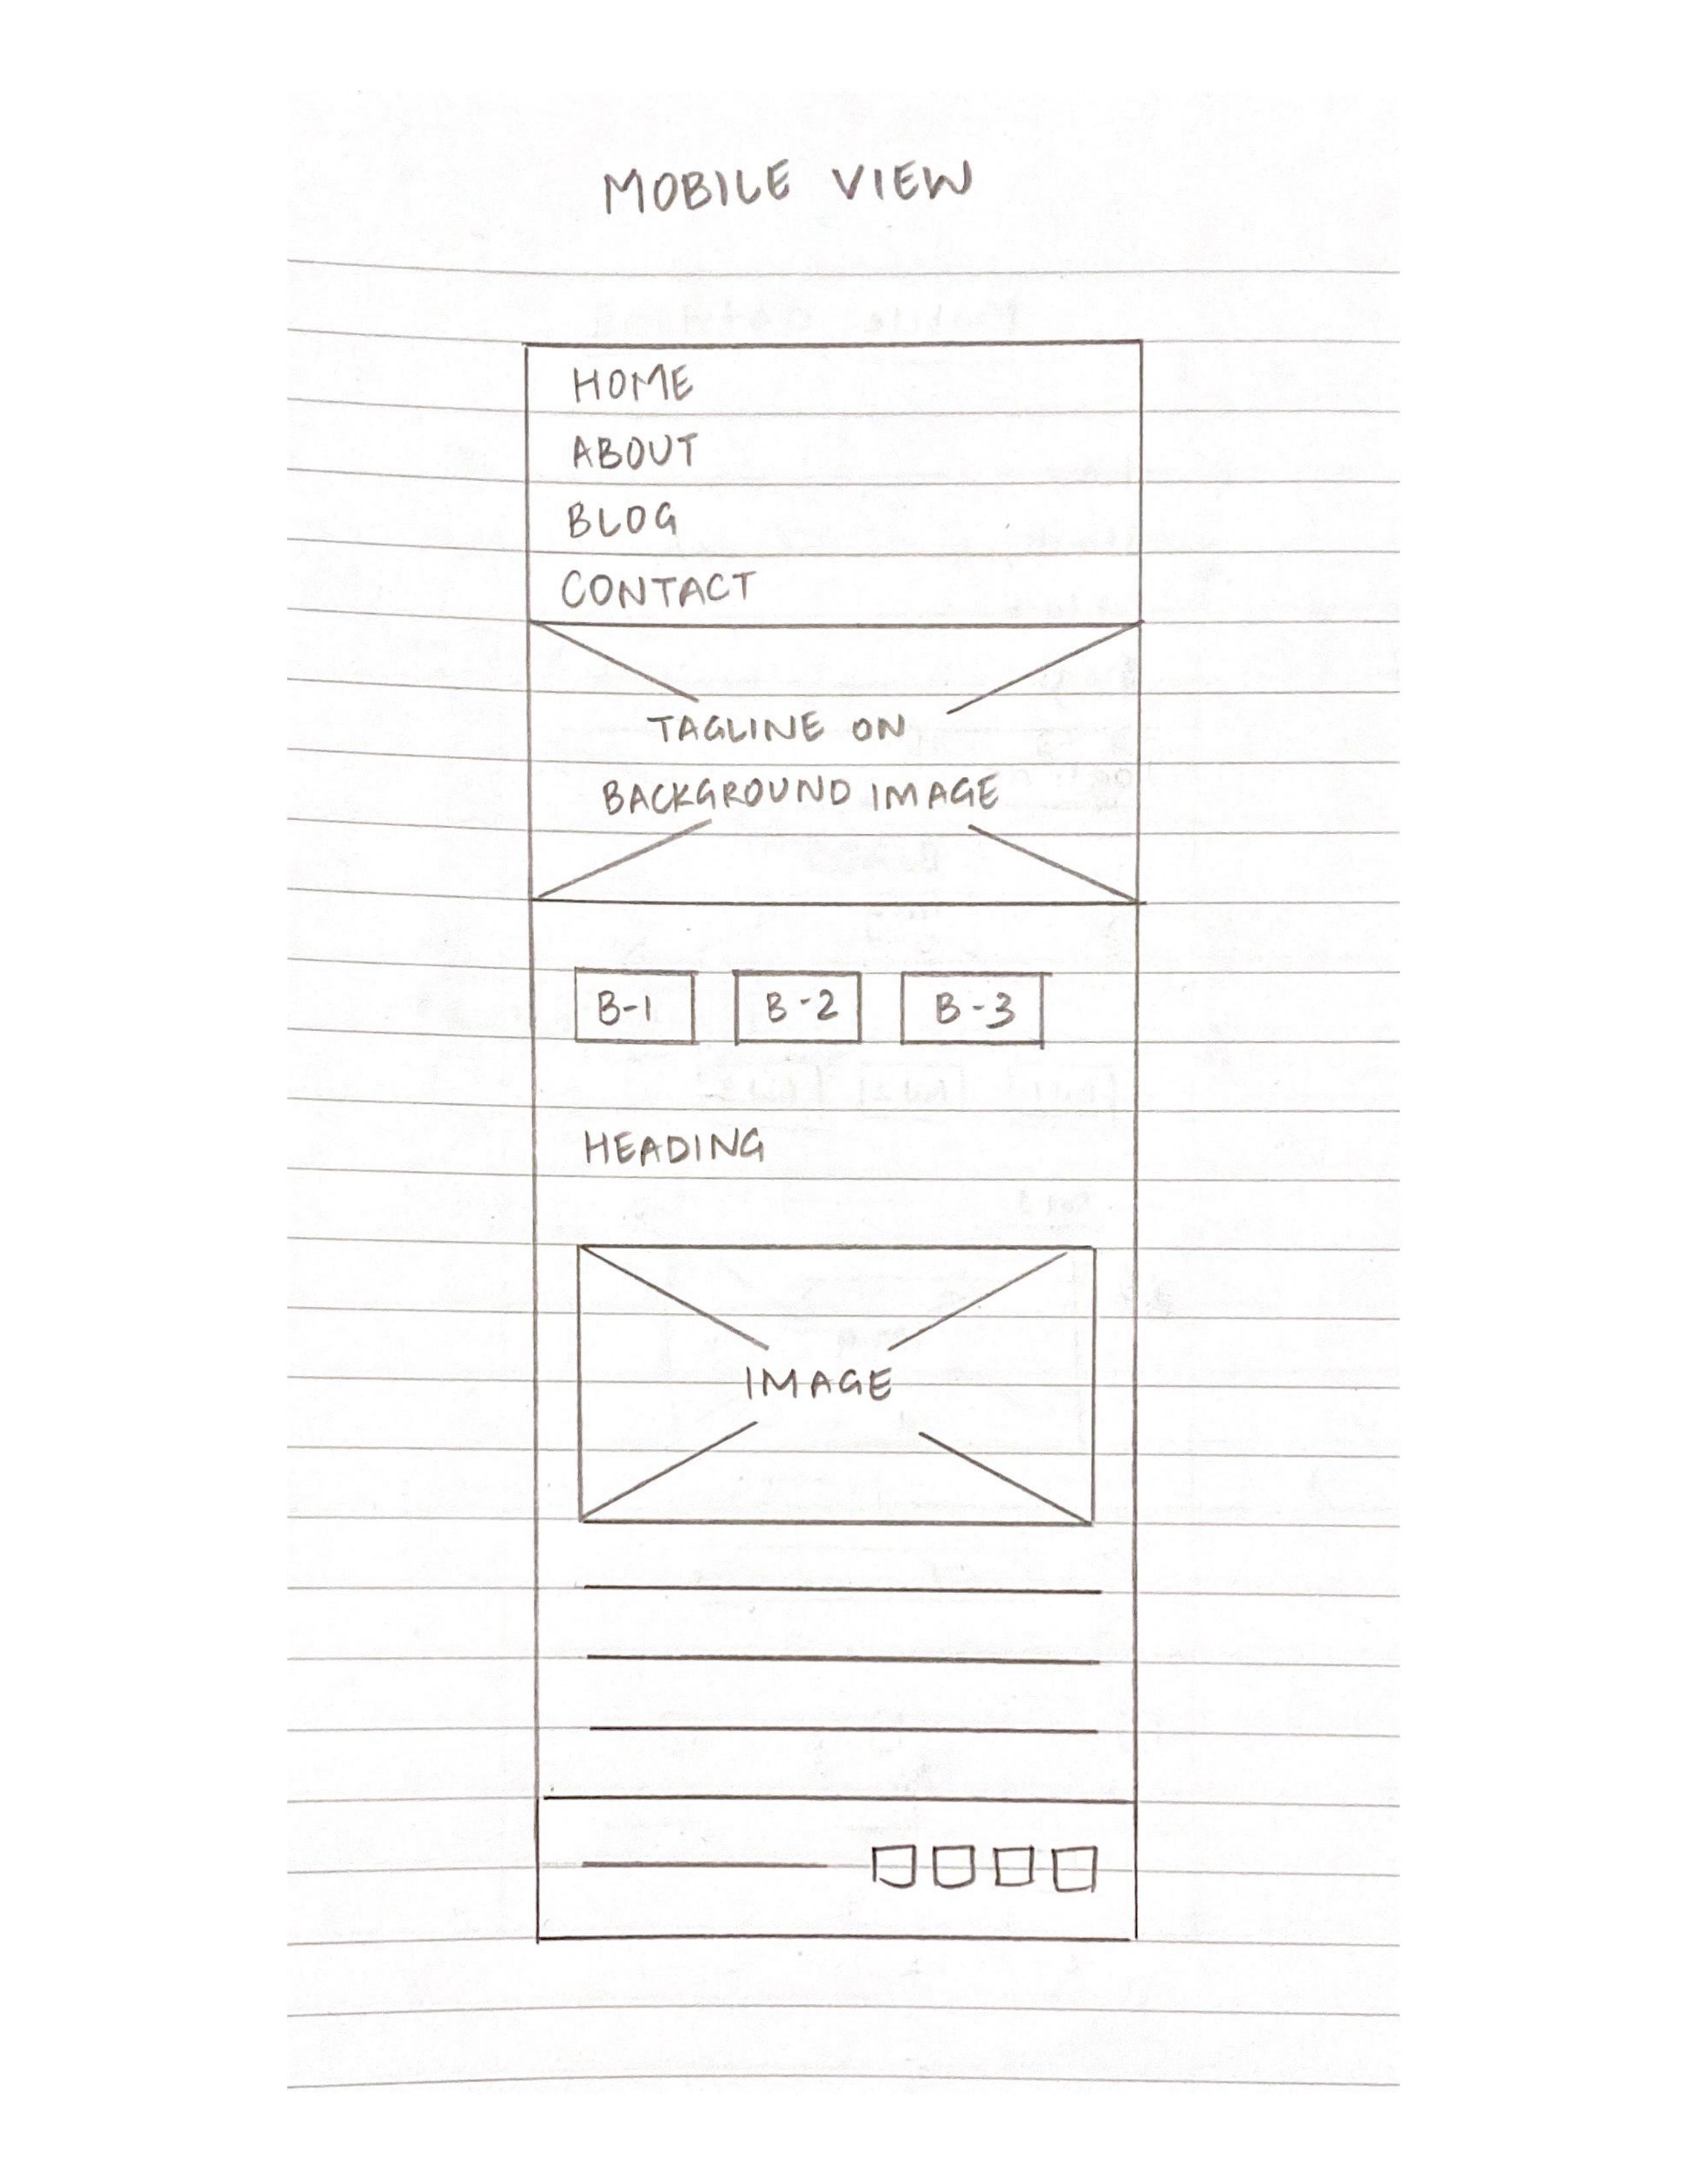 MOBILE VIEW
HOME
ABOUT
BLOG
CONTACT
TAGLINE ON
BACKGROUND IMAGE
B-1 B-2 B-3
HEADING
IMAGE